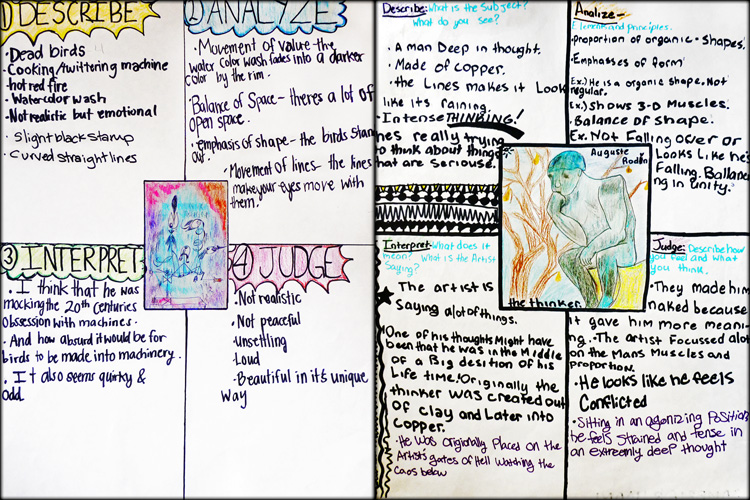 ① DESCRIBE
·Dead birds
·Cooking/twittering machine
·hot red fire
·Watercolor wash
·Not realistic but emotional
·Slight black stamp
·Curved straight lines
① ANALYZE
·Movement of value - the
water color wash fades into a darker
color by the rim.
·Balance of Space- theres a lot of
open space.
·emphasis of shape- the birds stand
out.
·Movement of lines- the lines
make your eyes move with
them.
③ INTERPRET
·I think that he was
mocking the 20th centuries
Obsession with machines.
·And how absurd it would be for
birds to be made into machinery.
·It also seems quirky &
odd.
④ JUDGE
·Not realistic
·Not peaceful
·Unsettling
·Loud
·Beautiful in it's unique
way
Describe: What is the Subject?
What do you see?
·A man Deep in thought.
·Made of copper.
·the Lines makes it Look
like its raining.
·Intense THINKING!
hes really trying
to think about things
that are seriouse.
Analize-
Elements and principles.
·Proportion of organic - Shapes.
·Emphases of form
Ex.) He is a organic shape. Not
regular.
Ex.) Shows 3-D Muscles.
·Balance of shape.
Ex. Not Falling over or
Looks Like he's
Falling. Ballanc
ing in unity.
Auguste
Rodin
the thinker.
Interpret: What does it
mean? What is the Artist
Saying?
The artist is
Saying alot of things.
One of his thoughts Might have
been that he was in the Middle
of a Big desition of his
Life time. Originally the
thinker was created out
of clay and Later into
copper.
·He was originally Placed on the
Artist's gates of Hell watching the
Caos below
Judge: Describe how
you Feel and what
you think.
·They made him
naked because
it gave him more meani
ng. ·The artist Focussed alot
on the Mans Muscles and
proportion.
·He looks like he feels
Conflicted
·Sitting in an agonizing Position
he feels strained and tense in
an extreemly deep thought